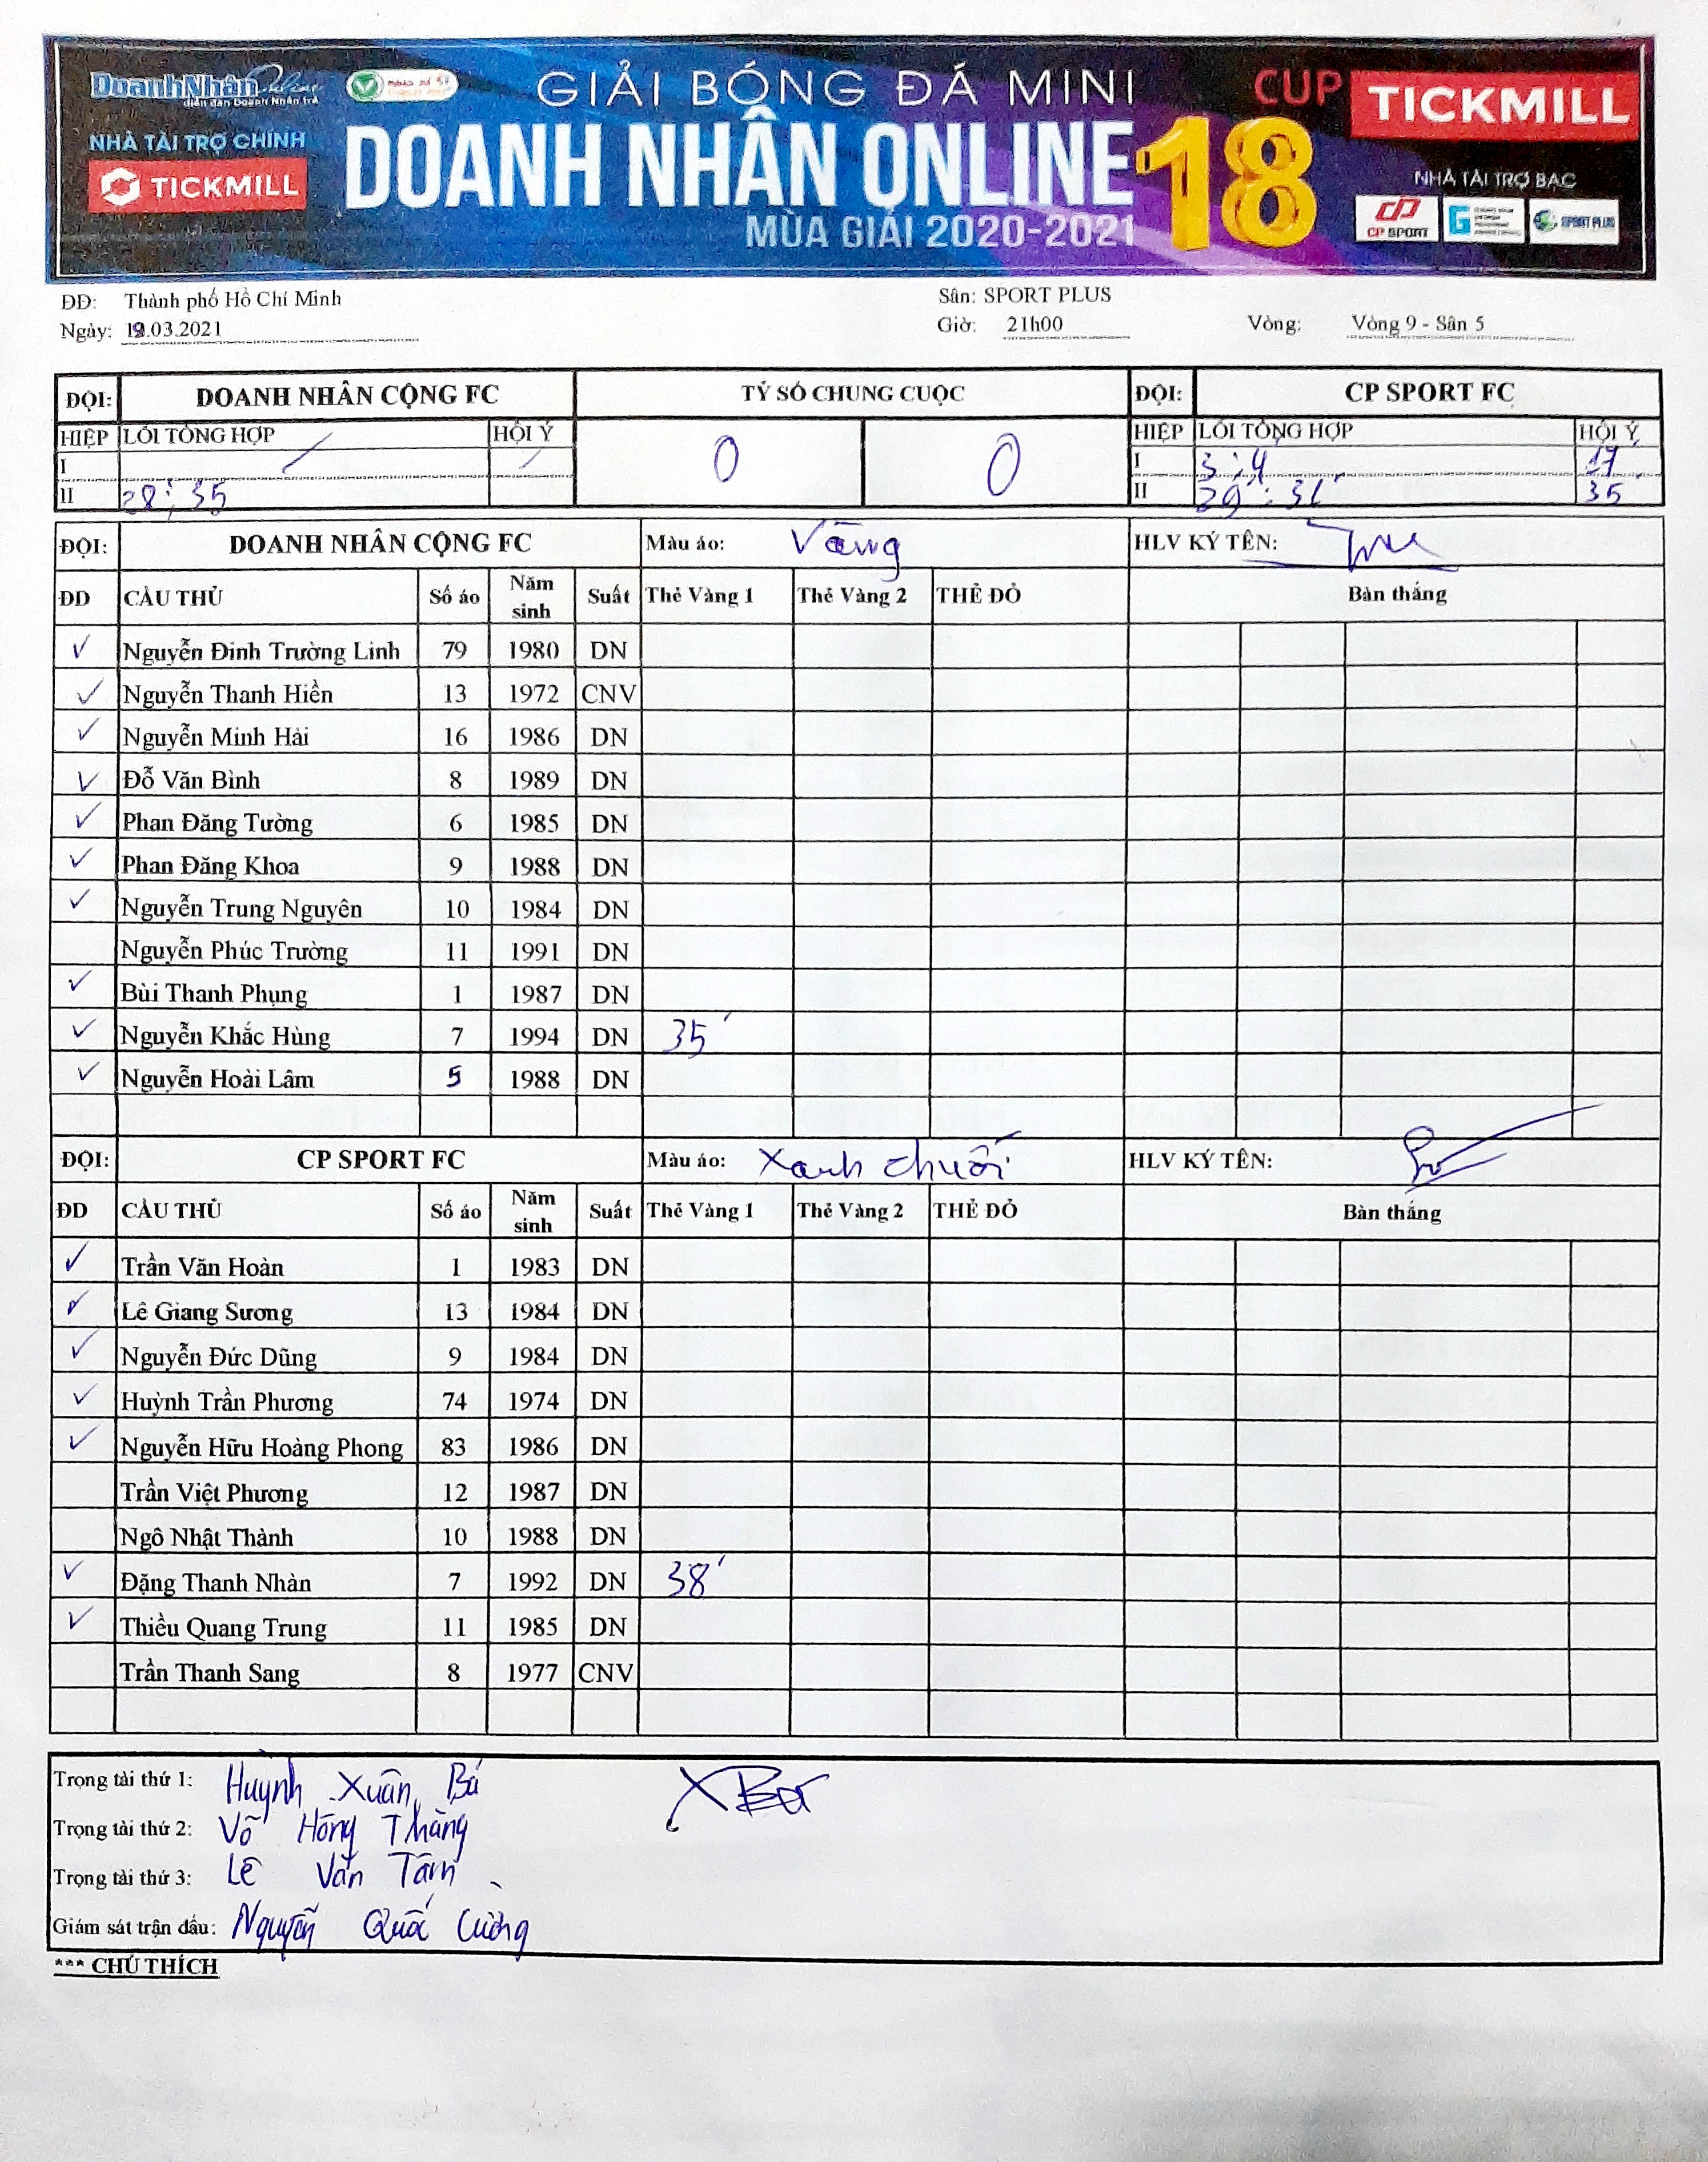 DoanhNhânOnline
diễn đàn Doanh Nhân trẻ
NHÀ TÀI TRỢ CHÍNH
TICKMILL
GIẢI BÓNG ĐÁ MINI
DOANH NHÂN ONLINE 18
MÙA GIẢI 2020-2021
CUP TICKMILL
NHÀ TÀI TRỢ BẠC
CP SPORT SPORT PLUS
ĐĐ: Thành phố Hồ Chí Minh Sân: SPORT PLUS
Ngày: 19.03.2021 Giờ: 21h00 Vòng: Vòng 9 - Sân 5
ĐỘI: DOANH NHÂN CỘNG FC TỶ SỐ CHUNG CUỘC ĐỘI: CP SPORT FC
HIỆP LỖI TỔNG HỢP HỘI Ý 0 0 HIỆP LỖI TỔNG HỢP HỘI Ý
I / / I 3; 4 17
II 28; 35 II 29'; 31' 35
ĐỘI: DOANH NHÂN CỘNG FC Màu áo: Vàng HLV KÝ TÊN:
ĐD CẦU THỦ Số áo Năm sinh Suất Thẻ Vàng 1 Thẻ Vàng 2 THẺ ĐỎ Bàn thắng
✓ Nguyễn Đinh Trường Linh 79 1980 DN
✓ Nguyễn Thanh Hiền 13 1972 CNV
✓ Nguyễn Minh Hải 16 1986 DN
✓ Đỗ Văn Bình 8 1989 DN
✓ Phan Đăng Tường 6 1985 DN
✓ Phan Đăng Khoa 9 1988 DN
✓ Nguyễn Trung Nguyên 10 1984 DN
Nguyễn Phúc Trường 11 1991 DN
✓ Bùi Thanh Phụng 1 1987 DN
✓ Nguyễn Khắc Hùng 7 1994 DN 35'
✓ Nguyễn Hoài Lâm 5 1988 DN
ĐỘI: CP SPORT FC Màu áo: Xanh chuối HLV KÝ TÊN:
ĐD CẦU THỦ Số áo Năm sinh Suất Thẻ Vàng 1 Thẻ Vàng 2 THẺ ĐỎ Bàn thắng
✓ Trần Văn Hoàn 1 1983 DN
✓ Lê Giang Sương 13 1984 DN
✓ Nguyễn Đức Dũng 9 1984 DN
✓ Huỳnh Trần Phương 74 1974 DN
✓ Nguyễn Hữu Hoàng Phong 83 1986 DN
Trần Việt Phương 12 1987 DN
Ngô Nhật Thành 10 1988 DN
✓ Đặng Thanh Nhàn 7 1992 DN 38'
✓ Thiều Quang Trung 11 1985 DN
Trần Thanh Sang 8 1977 CNV
Trọng tài thứ 1: Huỳnh Xuân Bá
Trọng tài thứ 2: Võ Hồng Thắng
Trọng tài thứ 3: Lê Văn Tâm
Giám sát trận đấu: Nguyễn Quốc Cường
*** CHÚ THÍCH